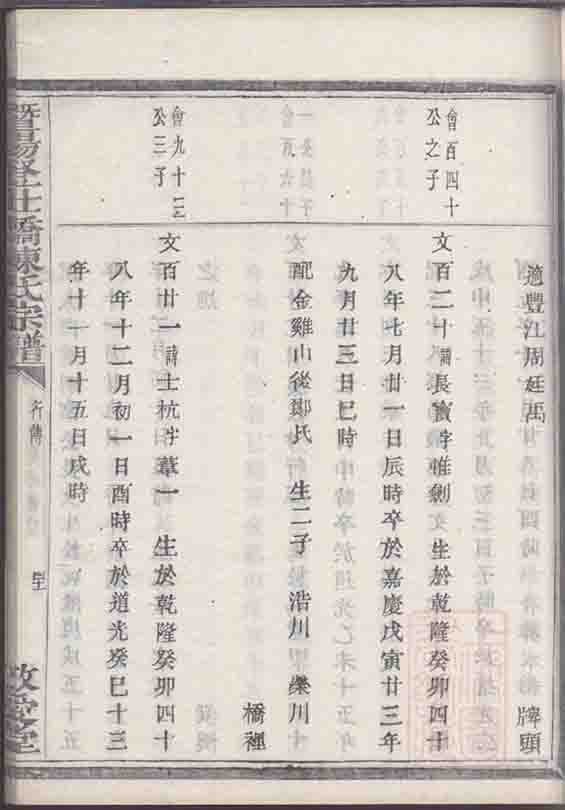 適豐江周廷禹
牌頭
會百四十
公之子
文百二十諱長寶字惟劍 生於乾隆癸卯四十
八年七月廿一日辰時卒於嘉慶戊寅廿三年
九月廿三日巳時
配金雞山後鄭氏 生二子 浩川 濼川
橋裡
會九十三
公三子
文百廿一諱士杭字葦一 生於乾隆癸卯四十
八年十二月初一日酉時卒於道光癸巳十三
年十一月十五日戌時
暨陽
橋陳氏宗譜
行傳
敬愛堂